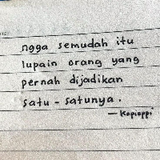 ngga semudah itu
lupain orang yang
pernah dijadikan
satu-satunya.
— Kopioppi